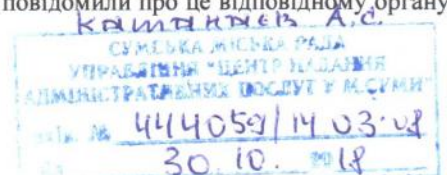 повідомили про це відповідному органу
А.С.
СУМСЬКА МІСЬКА РАДА
УПРАВЛІННЯ "ЦЕНТР НАДАННЯ
АДМІНІСТРАТИВНИХ ПОСЛУГ У М.СУМИ"
№ 444059/14 03.08
30. 10. 2018